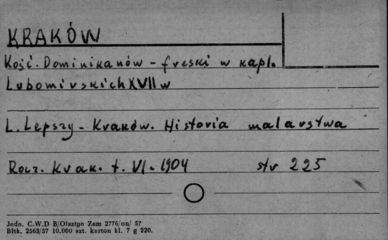 KRAKÓW
Kość. Dominikanów - freski w kapl.
Lubomirskich XVII w
L. Lepszy - Kraków. Historia malarstwa
Rocz. Krak. t. VI - 1904 str 225
Jedn. C.W.D B/Olsztyn Zam 2776/on/ 57
Bltk. 2563/57 10.000 szt. karton kl. 7 g 220.